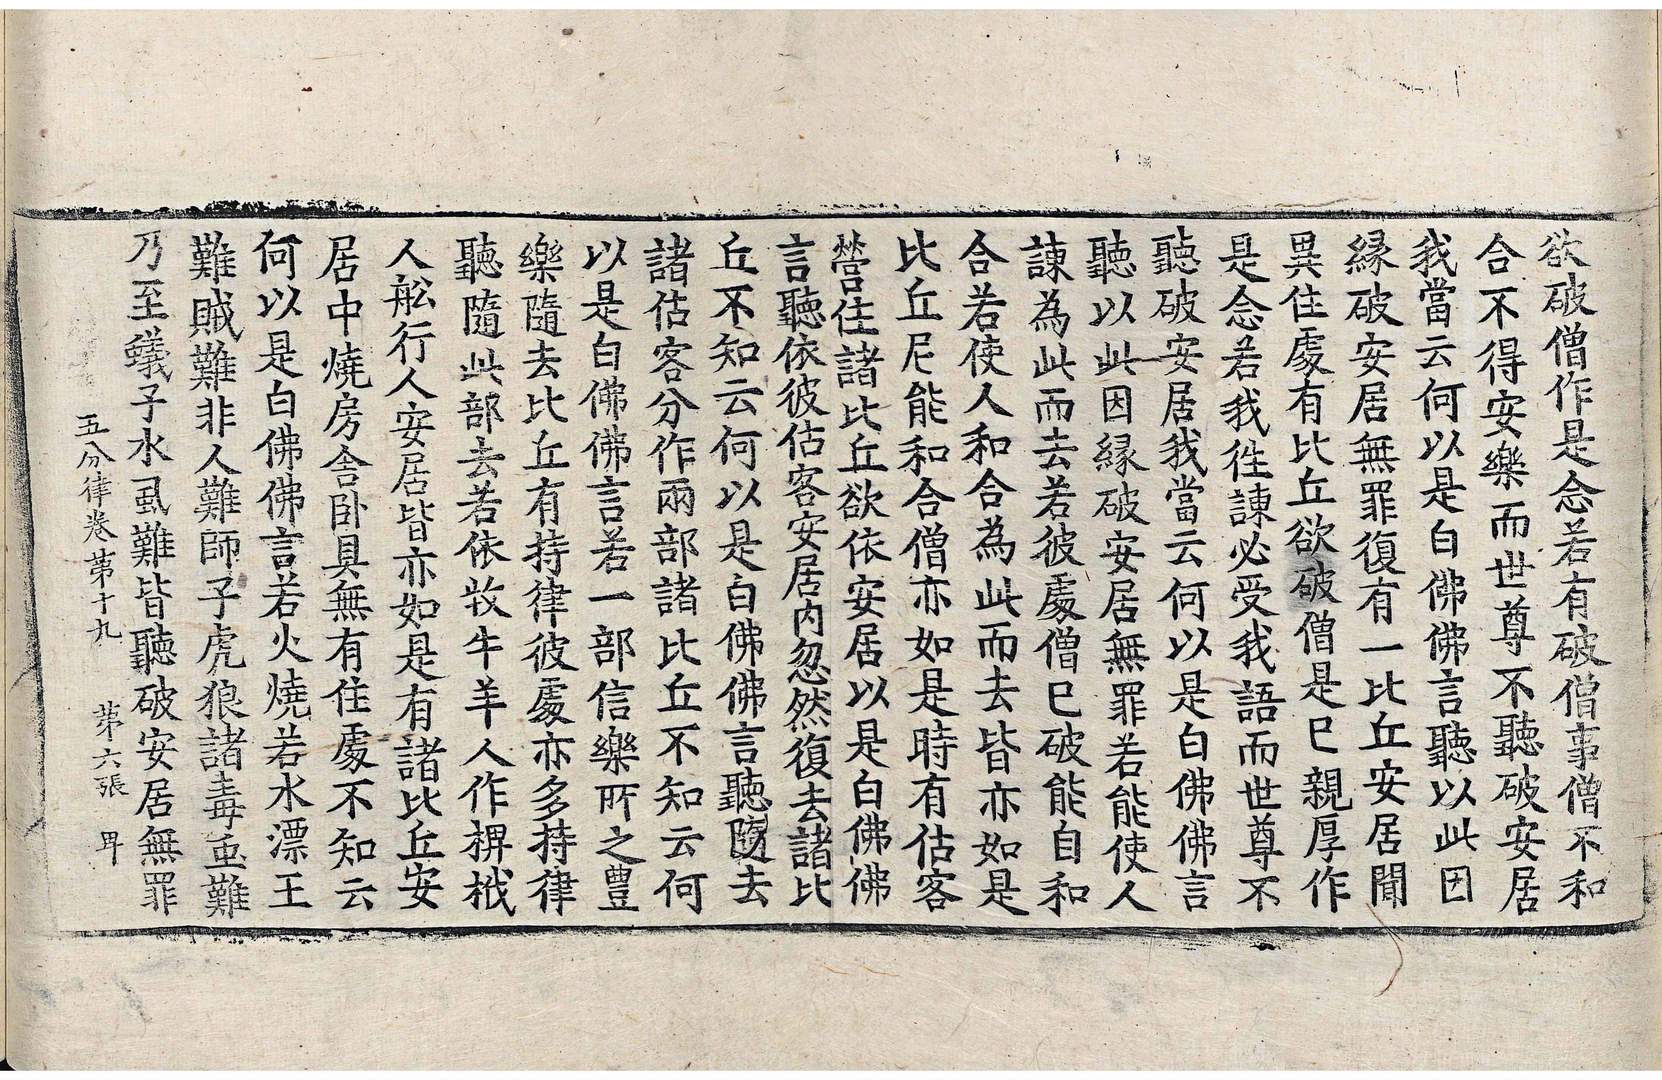 欲破僧作是念若有破僧事僧不和
合不得安樂而世尊不聽破安居
我當云何以是白佛佛言聽以此因
緣破安居無罪復有一比丘安居聞
異住處有比丘欲破僧是已親厚作
是念若我徃諌必受我語而世尊不
聽破安居我當云何以是白佛佛言
聽以此因緣破安居無罪若能使人
諌為此而去若彼處僧已破能自和
合若使人和合為此而去皆亦如是
比丘尼能和合僧亦如是時有估客
營住諸比丘欲依安居以是白佛佛
言聽依彼估客安居内忽然復去諸比
丘不知云何以是白佛佛言聽隨去
諸估客分作兩部諸比丘不知云何
以是白佛佛言若一部信樂所之豊
樂隨去比丘有持律彼處亦多持律
聽隨此部去若依牧牛羊人作椑栰
人舩行人安居皆亦如是有諸比丘安
居中燒房舍卧具無有住處不知云
何以是白佛佛言若火燒若水漂王
難賊難非人難師子虎狼諸毒䖝難
乃至蟻子水虱難皆聽破安居無罪
五分律卷苐十九　苐六張　𦕈